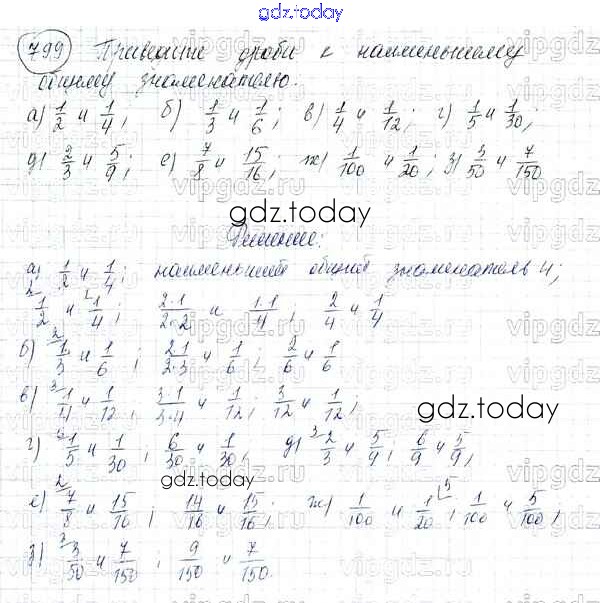 gdz.today
799 Приведите дроби к наименьшему
общему знаменателю.
а) 1/2 и 1/4; б) 1/3 и 1/6; в) 1/4 и 1/12; г) 1/5 и 1/30;
д) 2/3 и 5/9; е) 7/8 и 15/16; ж) 1/100 и 1/20; з) 3/50 и 7/150
gdz.today
Решение:
а) 1/2 и 1/4; наименьший общий знаменатель 4;
2 1/2 и 1/4; 2·1/2·2 и 1·1/4; 2/4 и 1/4
б) 2 1/3 и 1/6; 2·1/2·3 и 1/6; 2/6 и 1/6
в) 3 1/4 и 1/12, 3·1/3·4 и 1/12; 3/12 и 1/12;
gdz.today
г) 6 1/5 и 1/30; 6/30 и 1/30; д) 3 2/3 и 5/9; 6/9 и 5/9;
gdz.today
е) 2 7/8 и 15/16; 14/16 и 15/16; ж) 1/100 и 1/20 5, 1/100 и 5/100;
з) 3 3/50 и 7/150; 9/150 и 7/150.
vipgdz.ru